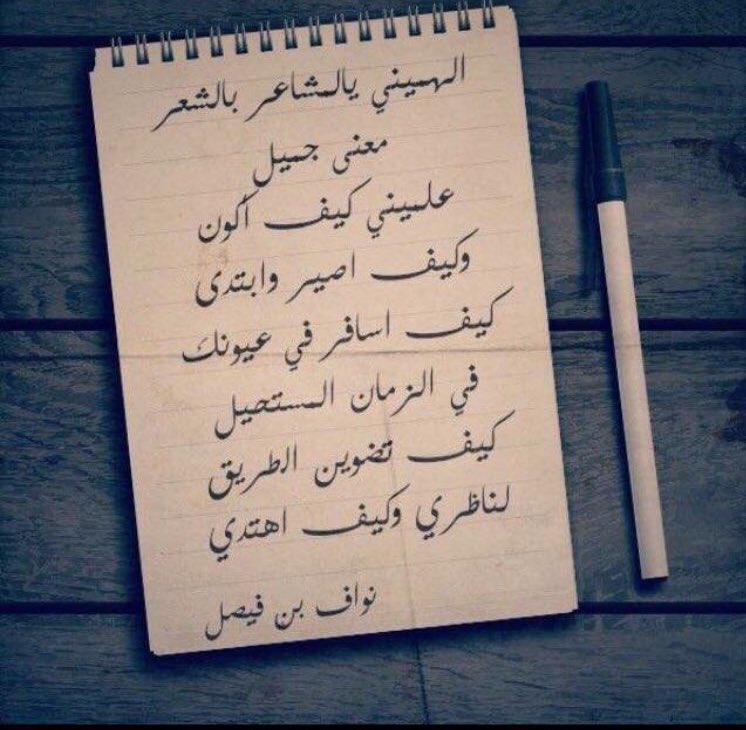 الهميني يالمشاعر بالشعر
معنى جميل
علميني كيف أكون
وكيف اصير وابتدى
كيف اسافر في عيونك
في الزمان المستحيل
كيف تضوين الطريق
لناظري وكيف اهتدي
نواف بن فيصل